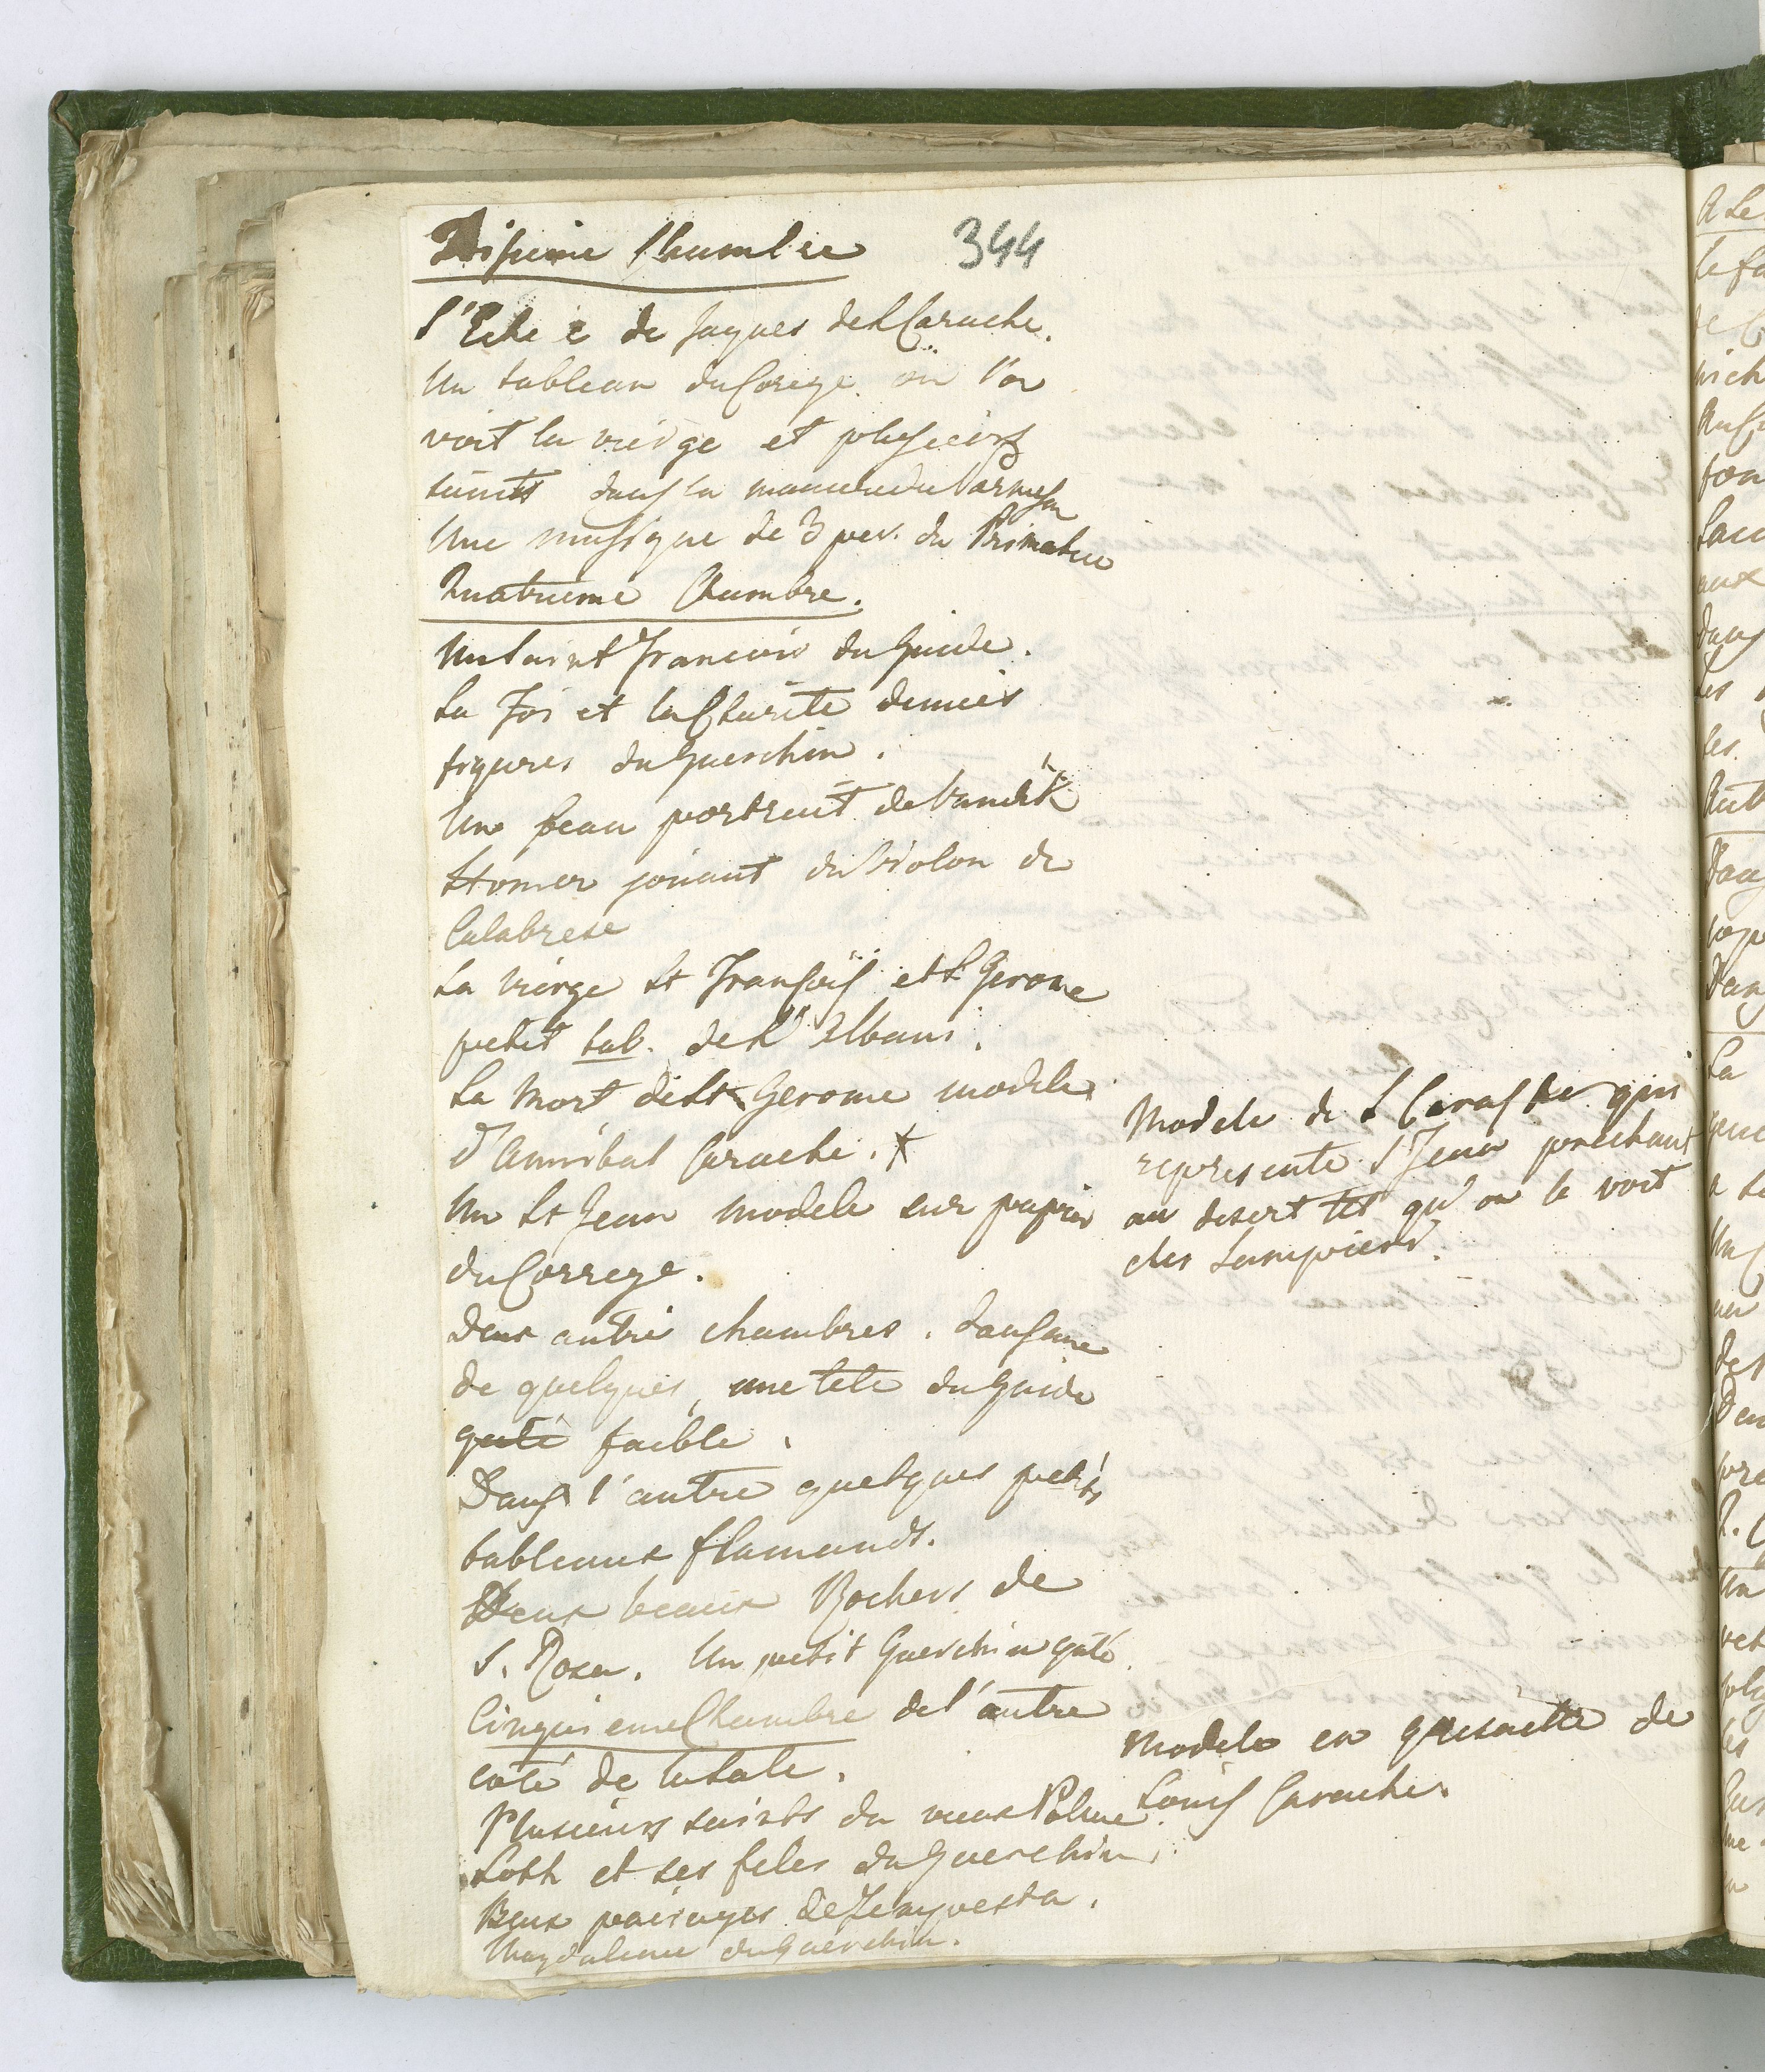 Troisieme Chambre 344
l'Echele de Jaques de L Carache.
Un tableau du Corege. où l'on
voit la vierge et plusieurs
saints dans la maniere du Parmesan
Une mussique de 3 per. du Primatice
Quatrieme Chambre.
Un Saint Francois du Guide.
La Foi et la Charite demies
figures du Guerchin.
Un beau portrait de Vandik
Homer jouant du Violon de
Calabrese
La vierge St Fransois et S. Gerome
petit tab. de l'Albani.
La Mort de St Gerome modele
d'Annibal Carache. *
Un St Jean modele sur papier
du Correge.
Deux autre chambres. Dans une
de quelques, une tete du Guide
gaté faible.
Dans l'autre quelques petits
tableaux flamands.
Deux beaux Rochers de
S. Rosa. Un petit Guerchin gaté.
Cinquieme Chambre de l'autre
coté de la sale.
Plusieurs saints du vieux Palme.
Loth et ses files du Guerchin.
Deux paisages de
Magdaleine du Guerchin.
Modele de L Carache qui
represente S Jean prechant
au desert tel qu'on le voit
ches Sampieri.
Modele en grisaille de
Louis Carache.